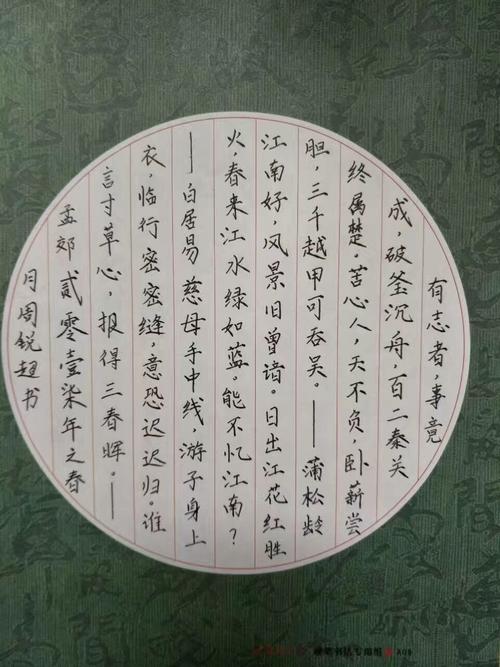 有志者，事竟
成，破釜沉舟，百二秦关
终属楚。苦心人，天不负，卧薪尝
胆，三千越甲可吞吴。——蒲松龄
江南好，风景旧曾谙。日出江花红胜
火，春来江水绿如蓝。能不忆江南？
——白居易 慈母手中线，游子身上
衣，临行密密缝，意恐迟迟归。谁
言寸草心，报得三春晖。——
孟郊 贰零壹柒年之春
月周锐超书
硬笔书法专用纸 A09